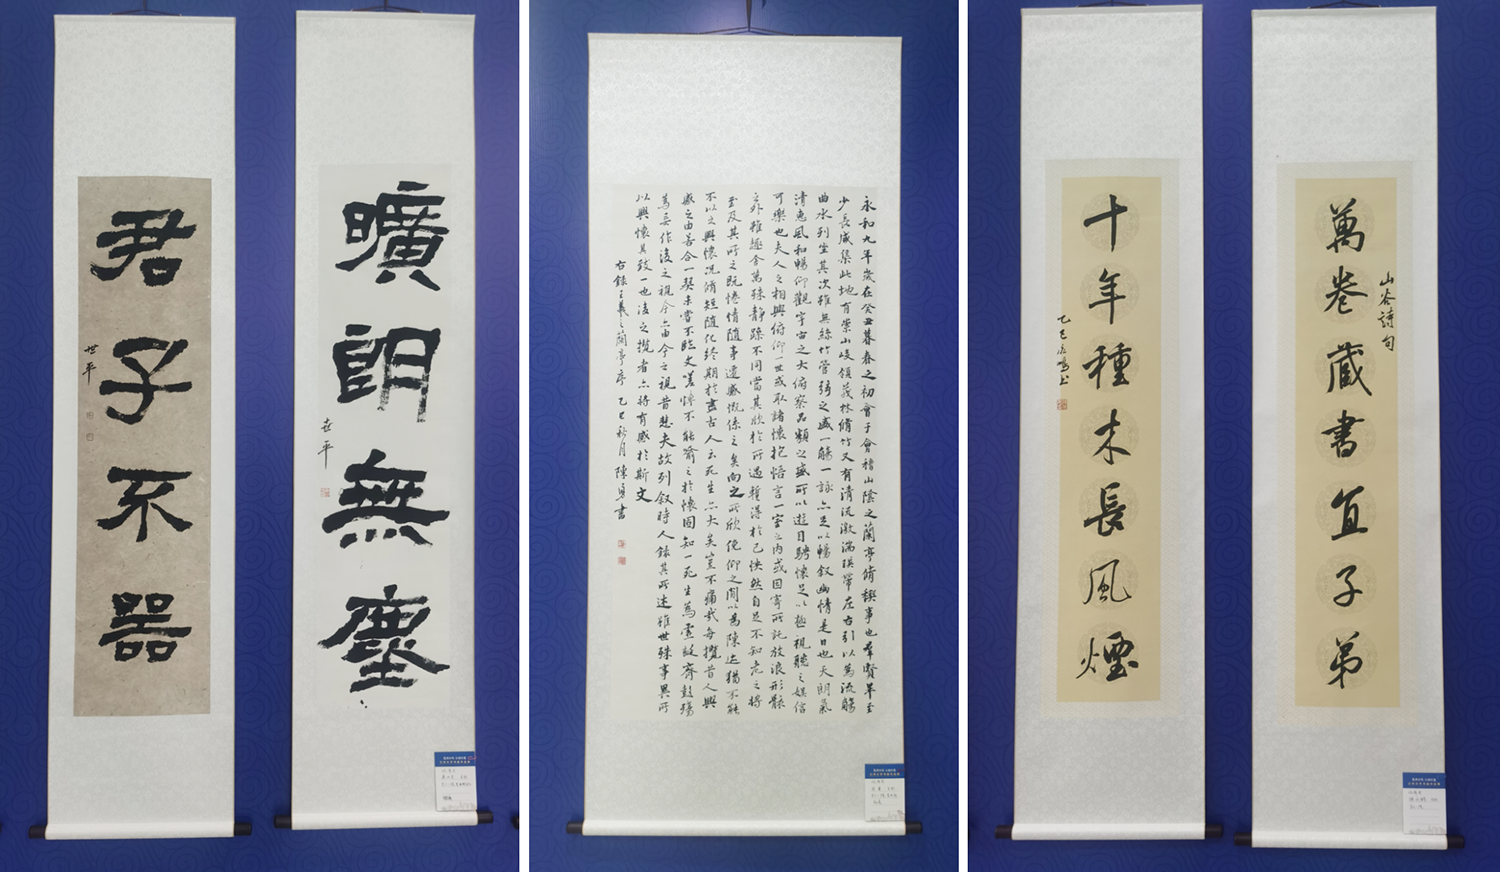 曠朗無塵
世平
君子不器
世平
永和九年歲在癸丑暮春之初會于會稽山陰之蘭亭脩禊事也羣賢畢至
少長咸集此地有崇山峻領茂林脩竹又有清流激湍暎帶左右引以為流觴
曲水列坐其次雖無絲竹管弦之盛一觴一詠亦足以暢叙幽情是日也天朗氣
清惠風和暢仰觀宇宙之大俯察品類之盛所以遊目騁懷足以極視聽之娛信
可樂也夫人之相與俯仰一世或取諸懷抱悟言一室之内或因寄所託放浪形骸
之外雖趣舍萬殊靜躁不同當其欣於所遇暫得於己快然自足不知老之將
至及其所之既惓情隨事遷感慨係之矣向之所欣俛仰之間以為陳迹猶不能
不以之興懷況脩短隨化終期於盡古人云死生亦大矣豈不痛哉每攬昔人興
感之由若合一契未嘗不臨文嗟悼不能喻之於懷固知一死生為虛誕齊彭殤
為妄作後之視今亦由今之視昔悲夫故列叙時人錄其所述雖世殊事異所
以興懷其致一也後之攬者亦將有感於斯文
右錄王羲之蘭亭序乙巳秋月陳勇書
山谷詩句
萬卷藏書宜子弟
十年種木長風煙
乙巳